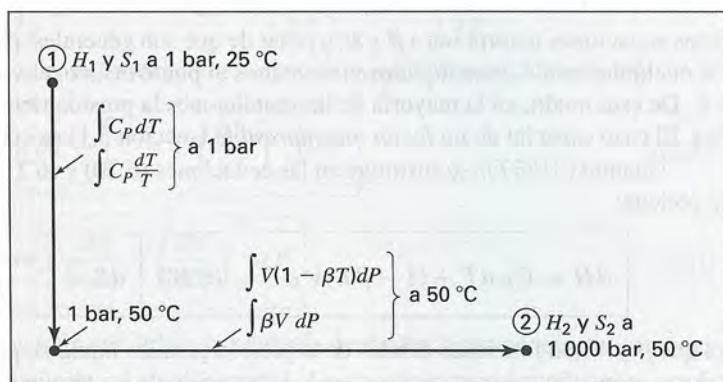 ① H₁ y S₁ a 1 bar, 25 °C
∫ C_P dT
∫ C_P dT/T
a 1 bar
∫ V(1 − βT)dP
∫ βV dP
a 50 °C
1 bar, 50 °C
② H₂ y S₂ a
1 000 bar, 50 °C